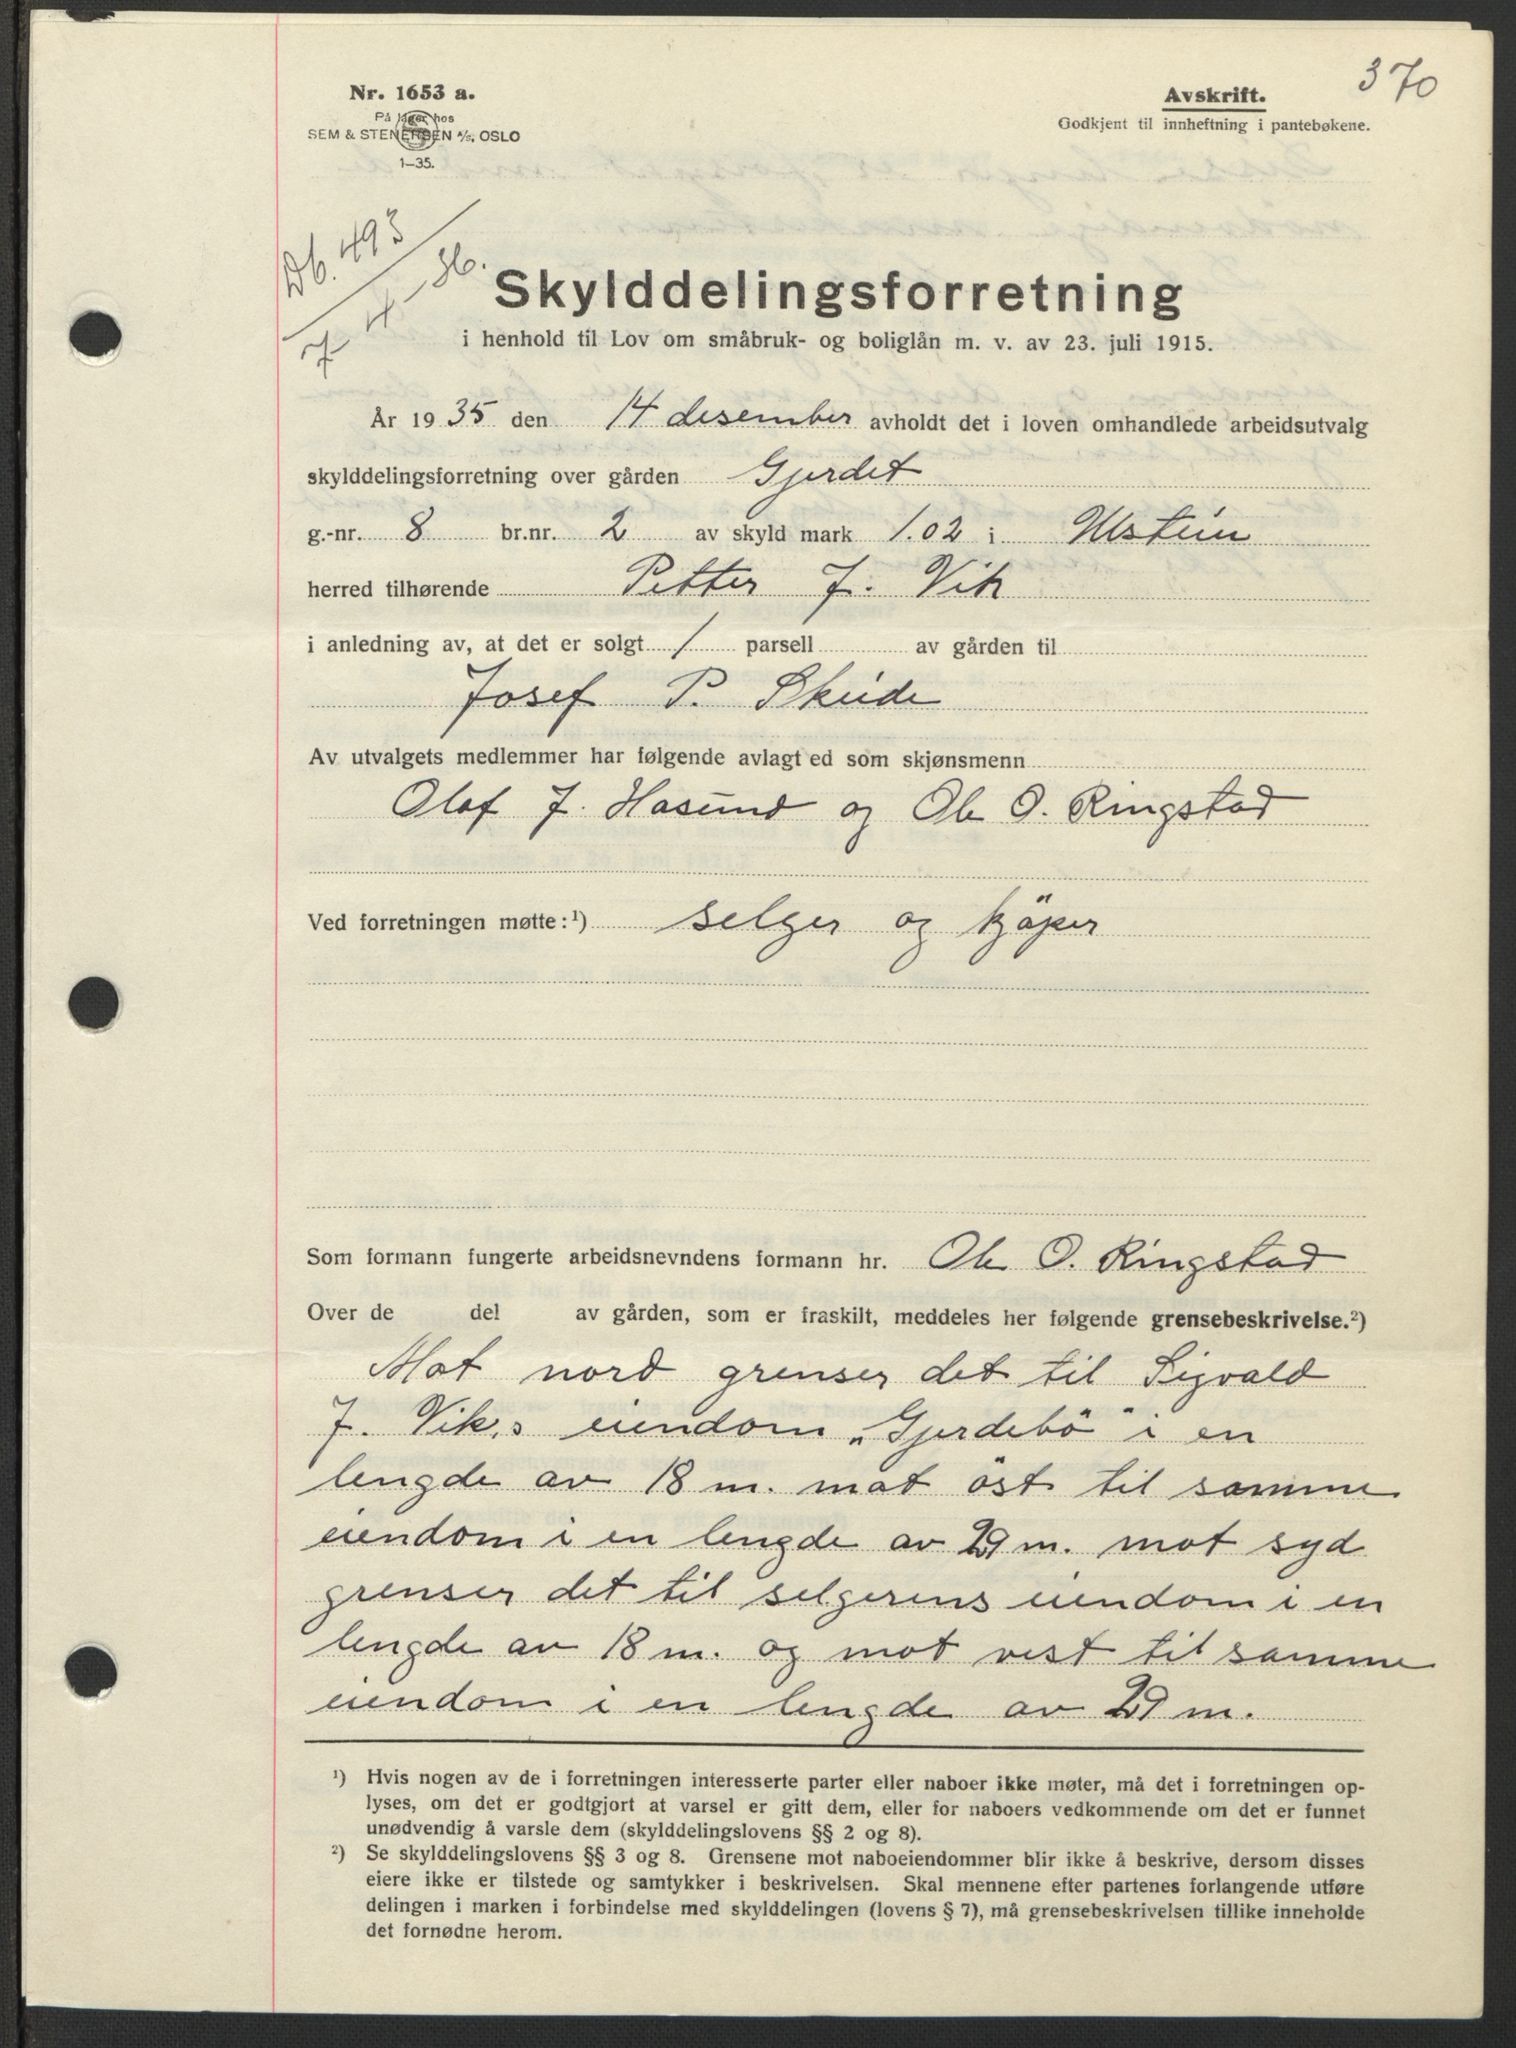 370
Nr. 1653 a.
På lager hos
SEM & STENERSEN A/S, OSLO
1—35.
Avskrift.
Godkjent til innheftning i pantebøkene.
Db. 493
7/4 - 36.
Skylddelingsforretning
i henhold til Lov om småbruk- og boliglån m. v. av 23. juli 1915.
År 1935 den 14 desember avholdt det i loven omhandlede arbeidsutvalg
skylddelingsforretning over gården Gjerdet
g.-nr. 8 br.nr. 2 av skyld mark 1.02 i Ulstein
herred tilhørende Petter J. Vik
i anledning av, at det er solgt 1 parsell av gården til
Josef P. Skeide
Av utvalgets medlemmer har følgende avlagt ed som skjønsmenn
Olaf J. Hasund og Ole O. Ringstad
Ved forretningen møtte:¹) selger og kjöper
Som formann fungerte arbeidsnevndens formann hr. Ole O. Ringstad
Over de del av gården, som er fraskilt, meddeles her følgende grensebeskrivelse.²)
Mot nord grenser det til Sigvald
J. Vik,s eiendom „Gjerdebö" i en
lengde av 18 m. mot öst til samme
eiendom i en lengde av 29 m. mot syd
grenser det til selgerens eiendom i en
lengde av 18 m. og mot vest til samme
eiendom i en lengde av 29 m.
¹) Hvis nogen av de i forretningen interesserte parter eller naboer ikke møter, må det i forretningen op-
lyses, om det er godtgjort at varsel er gitt dem, eller for naboers vedkommende om det er funnet
unødvendig å varsle dem (skylddelingslovens §§ 2 og 8).
²) Se skylddelingslovens §§ 3 og 8. Grensene mot naboeiendommer blir ikke å beskrive, dersom disses
eiere ikke er tilstede og samtykker i beskrivelsen. Skal mennene efter partenes forlangende utføre
delingen i marken i forbindelse med skylddelingen (lovens § 7), må grensebeskrivelsen tillike inneholde
det fornødne herom.